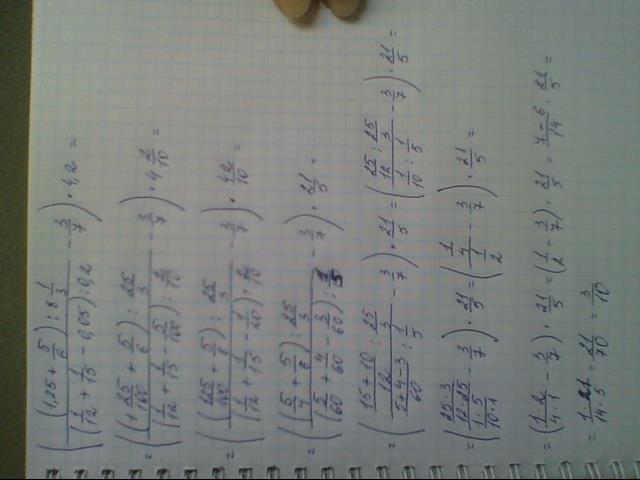 (((1,25 + 5/6) : 8 1/3) / ((1/12 + 1/15 − 0,05) : 0,2) − 3/7) · 4,2 =
= (((1 25/100 + 5/6) : 25/3) / ((1/12 + 1/15 − 5/100) : 2/10) − 3/7) · 4 2/10 =
= (((125/100 + 5/6) : 25/3) / ((1/12 + 1/15 − 1/20) : 2/10) − 3/7) · 42/10 =
= (((5/4 + 5/6) : 25/3) / ((5/60 + 4/60 − 3/60) : 1/5) − 3/7) · 21/5 =
= ((15+10/12 : 25/3) / (5+4−3/60 : 1/5) − 3/7) · 21/5 = ((25/12 : 25/3) / (1/10 : 1/5) − 3/7) · 21/5 =
= ((25·3/12·25) / (1·5/10·1) − 3/7) · 21/5 = ((1/4) / (1/2) − 3/7) · 21/5 =
= (1·2/4·1 − 3/7) · 21/5 = (1/2 − 3/7) · 21/5 = 7−6/14 · 21/5 =
= 1·21/14·5 = 21/70 = 3/10